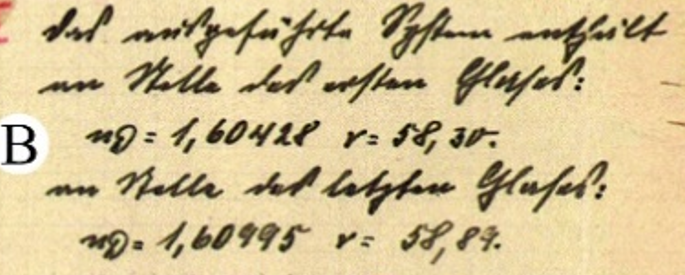 das ausgeführte System enthält
an Stelle des ersten Glases:
B
nD = 1,60428 v = 58,30.
an Stelle des letzten Glases:
nD = 1,60995 v = 58,89.